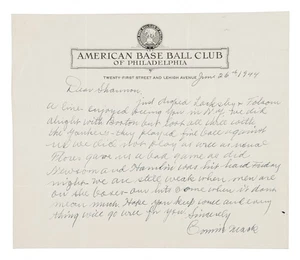 AMERICAN BASE BALL CLUB
OF PHILADELPHIA
TWENTY-FIRST STREET AND LEHIGH AVENUE
June 26th 1944
Dear Shannon
Just dropped
a line enjoyed seeing you in N.Y. we did
alright with Boston but lost all three with
the Yankees they played fine ball against
us we did not play as well as usual
Flores gave us a bad game as did
Newsom and Harris was hit hard Friday
night we are still weak when men are
on the bases our hits come when it dont
mean much. Hope you keep well and every
thing will go well for you. Sincerely
Connie Mack